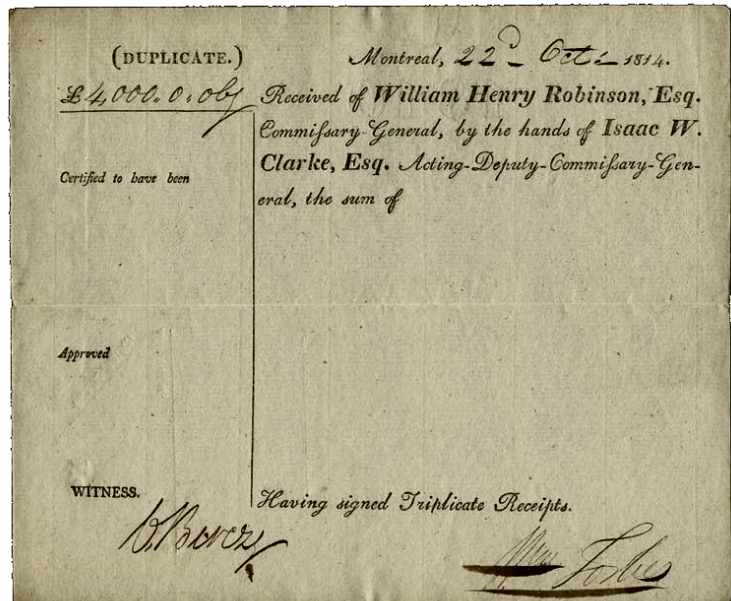 (DUPLICATE.)
Montreal, 22d Octr 1814.
£4,000. 0. 0
Received of William Henry Robinson, Esq.
Commiſsary-General, by the hands of Isaac W.
Clarke, Esq. Acting-Deputy-Commiſsary-Gen-
eral, the sum of
Certified to have been
Approved
WITNESS.
Having signed Triplicate Receipts.
Forbes